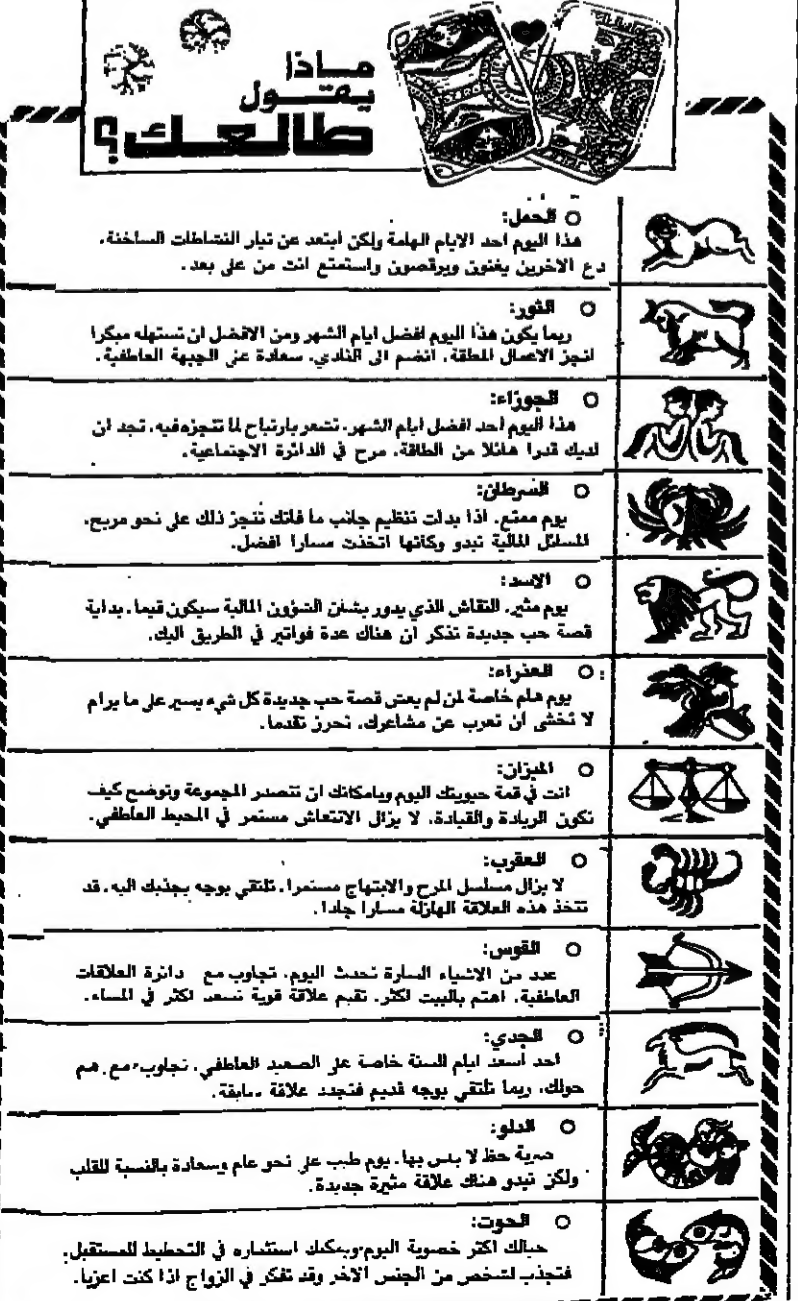 ماذا
يقول
طالعك؟
○ الحمل:
هذا اليوم احد الايام الهامة ولكن ابتعد عن تيار النشاطات الساخنة.
دع الاخرين يغنون ويرقصون واستمتع انت من على بعد.
○ الثور:
ربما يكون هذا اليوم افضل ايام الشهر ومن الافضل ان تستهله مبكرا
انجز الاعمال المعلقة. انضم الى النادي. سعادة على الجبهة العاطفية.
○ الجوزاء:
هذا اليوم احد افضل ايام الشهر. تشعر بارتياح لما تنجزه فيه. تجد ان
لديك قدرا هائلا من الطاقة. مرح في الدائرة الاجتماعية.
○ السرطان:
يوم ممتع. اذا بدات تنظيم جانب ما فاتك تنجز ذلك على نحو مريح.
المسائل المالية تبدو وكانها اتخذت مسارا افضل.
○ الاسد:
يوم مثير. النقاش الذي يدور بشان الشؤون المالية سيكون قيما. بداية
قصة حب جديدة تذكر ان هناك عدة فواتير في الطريق اليك.
○ العذراء:
يوم هام خاصة لمن لم يعش قصة حب جديدة كل شيء يسير على ما يرام
لا تخشى ان تعرب عن مشاعرك. تحرز تقدما.
○ الميزان:
انت في قمة حيويتك اليوم وبامكانك ان تتصدر المجموعة وتوضح كيف
تكون الريادة والقيادة. لا يزال الانتعاش مستمر في المحيط العاطفي.
○ العقرب:
لا يزال مسلسل المرح والابتهاج مستمرا. تلتقي بوجه يجذبك اليه. قد
تتخذ هذه العلاقة الهازلة مسارا جادا.
○ القوس:
عدد من الاشياء السارة تحدث اليوم. تجاوب مع دائرة العلاقات
العاطفية. اهتم بالبيت اكثر. تقيم علاقة قوية تسعد اكثر في المساء.
○ الجدي:
احد أسعد ايام السنة خاصة على الصعيد العاطفي. تجاوب مع هم
حولك. ربما تلتقي بوجه قديم فتجدد علاقة سابقة.
○ الدلو:
ضربة حظ لا بأس بها. يوم طيب على نحو عام وسعادة بالنسبة للقلب
ولكن تبدو هناك علاقة مثيرة جديدة.
○ الحوت:
خيالك اكثر خصوبة اليوم ويمكنك استثماره في التخطيط للمستقبل.
فتجذب لشخص من الجنس الاخر وقد تفكر في الزواج اذا كنت اعزبا.